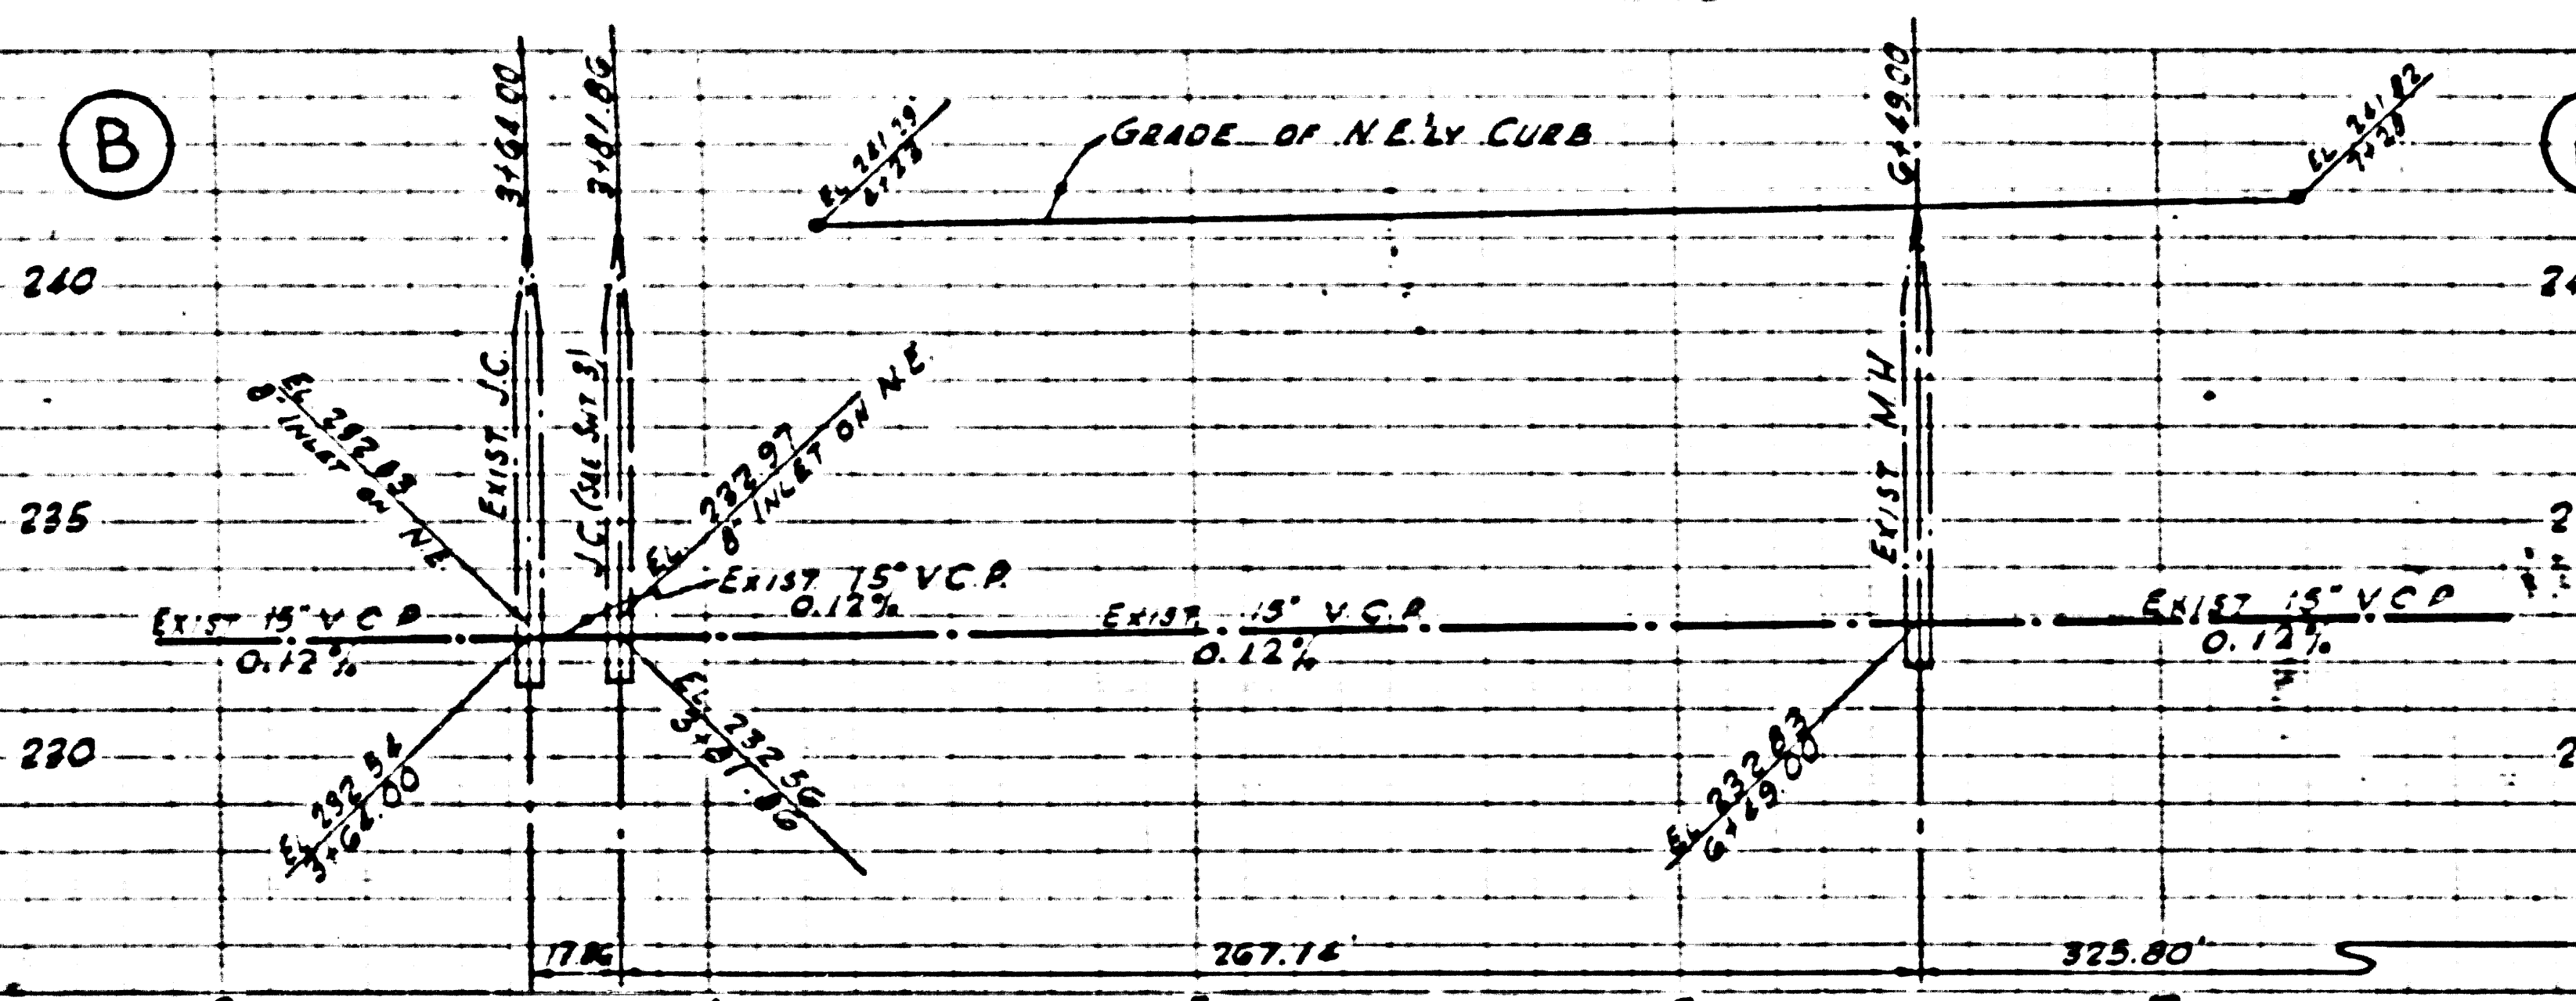 B
3+64.00
3+81.86
EL 241.39
4+23
GRADE OF N.E'LY CURB
6+49.00
EL 241.82
7+28
240
EXIST J.C.
J.C. (SEE SHT 3)
EXIST M.H
EL 232.83
8" INLET ON N.E.
EL. 232.97
8" INLET ON N.E.
235
EXIST 15" V.C.P.
0.12%
EXIST 15" V.C.P.
0.12%
EXIST. 15" V.C.P.
0.12%
EXIST 15" V.C.P
0.12%
230
EL 232.54
3+64.00
EL. 232.56
3+81.86
EL 232.83
6+49.00
17.86
267.14'
325.80'